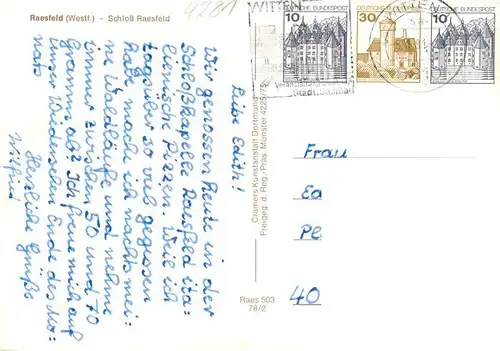 Raesfeld (Westf.) - Schloß Raesfeld
4281
WITTEN
10 DEUTSCHE BUNDESPOST
30 DEUTSCHE BUNDESPOST
10
Liebe Edith!
Wir genossen heute in der
Schloßkapelle Raesfeld ita-
lienische Pizzen. Weil ich
tagsüber so viel gegessen
habe, mach ich nachts mei-
ne Waldläufe und nehme
immer zwischen 50 und 70
Gramm ab? Ich freue mich auf
unser Wiedersehen Ende des Mo-
nats
Herzliche Grüße
Wilfried
Cramers Kunstanstalt Dortmund
Freigeg. d. Reg.-Präs. Münster 4225/75
Raes 503
78/2
Frau
Ea
Pl
40